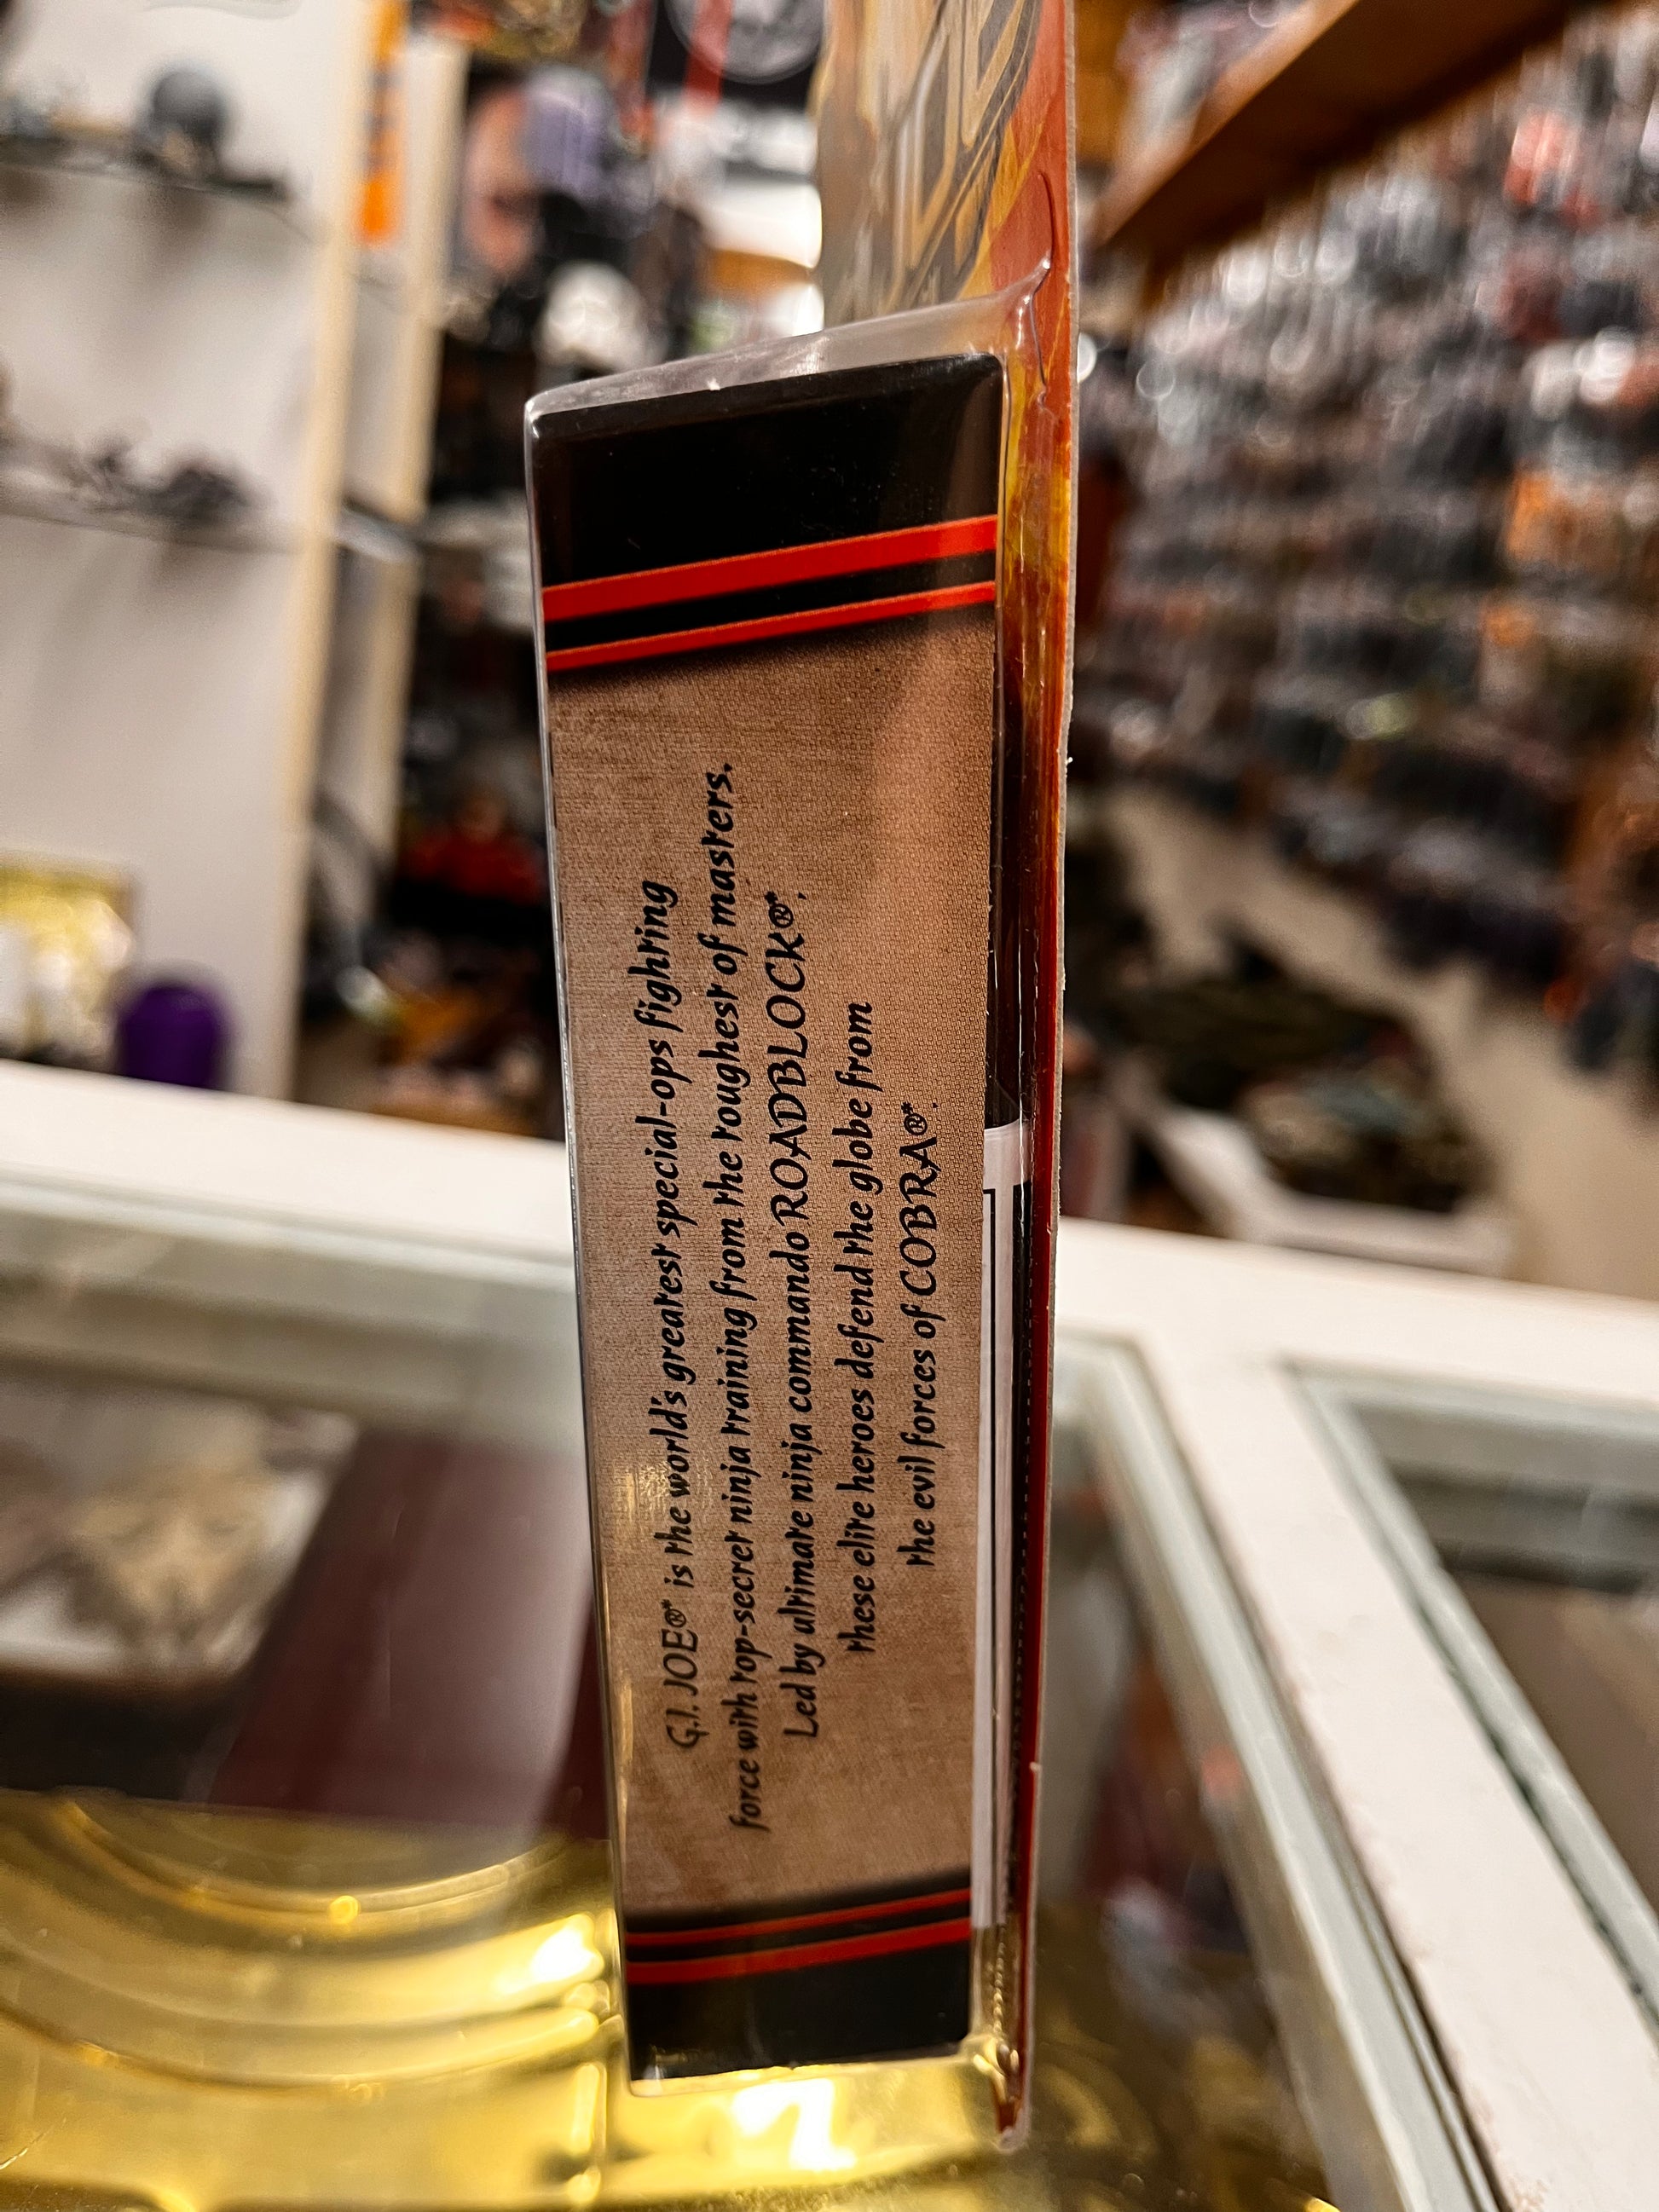 G.I. JOE®* is the world's greatest special-ops fighting
force with top-secret ninja training from the roughest of masters.
Led by ultimate ninja commando ROADBLOCK®*,
these elite heroes defend the globe from
the evil forces of COBRA®*.